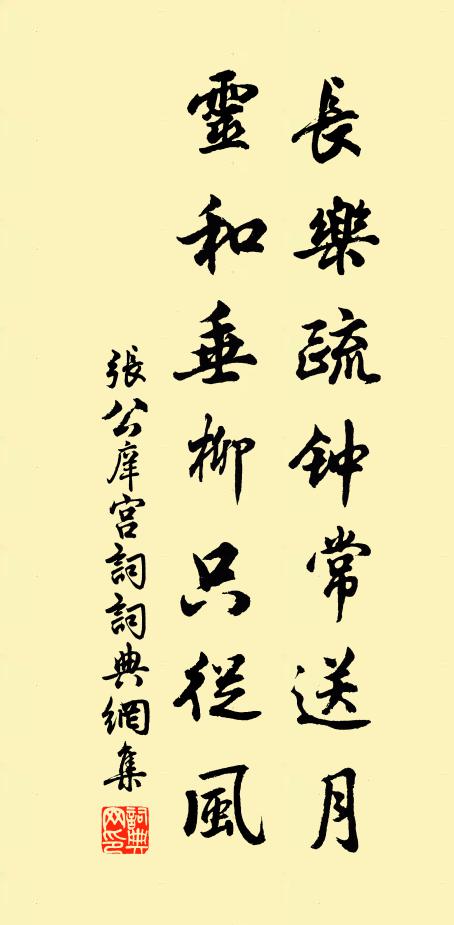 長樂疏钟常送月
靈和垂柳只從風
張公庠宮詞詞典網集
詞典網印